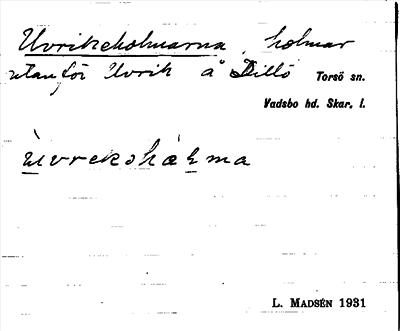 Uvrikeholmarna, holmar
utanför Uvrik å Dillö Torsö sn.
Vadsbo hd. Skar. l.
L. MADSÉN 1931